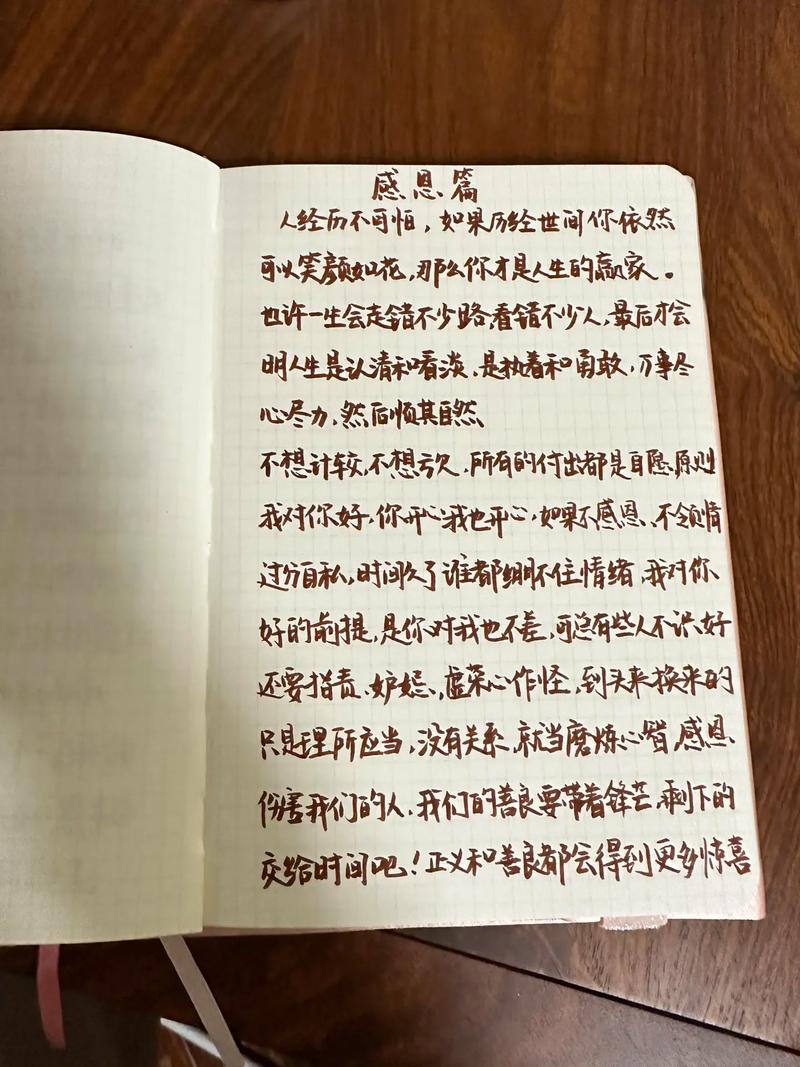 感恩篇
人经历不可怕，如果历经世间你依然
可以笑颜如花，那么你才是人生的赢家。
也许一生会走错不少路，看错不少人，最后才会
明人生是认清和看淡，是执着和勇敢，万事尽
心尽力，然后顺其自然
不想计较，不想亏欠，所有的付出都是自愿原则
我对你好，你开心我也开心，如果不感恩、不领情
过分自私，时间久了谁都绷不住情绪，我对你
好的前提，是你对我也不差，可总有些人不识好
还要指责、妒嫉、虚荣心作怪，到头来换来的
只是理所应当，没有关系，就当磨炼心智，感恩、
伤害我们的人，我们的善良要带着锋芒，剩下的
交给时间吧！正义和善良都会得到更多惊喜